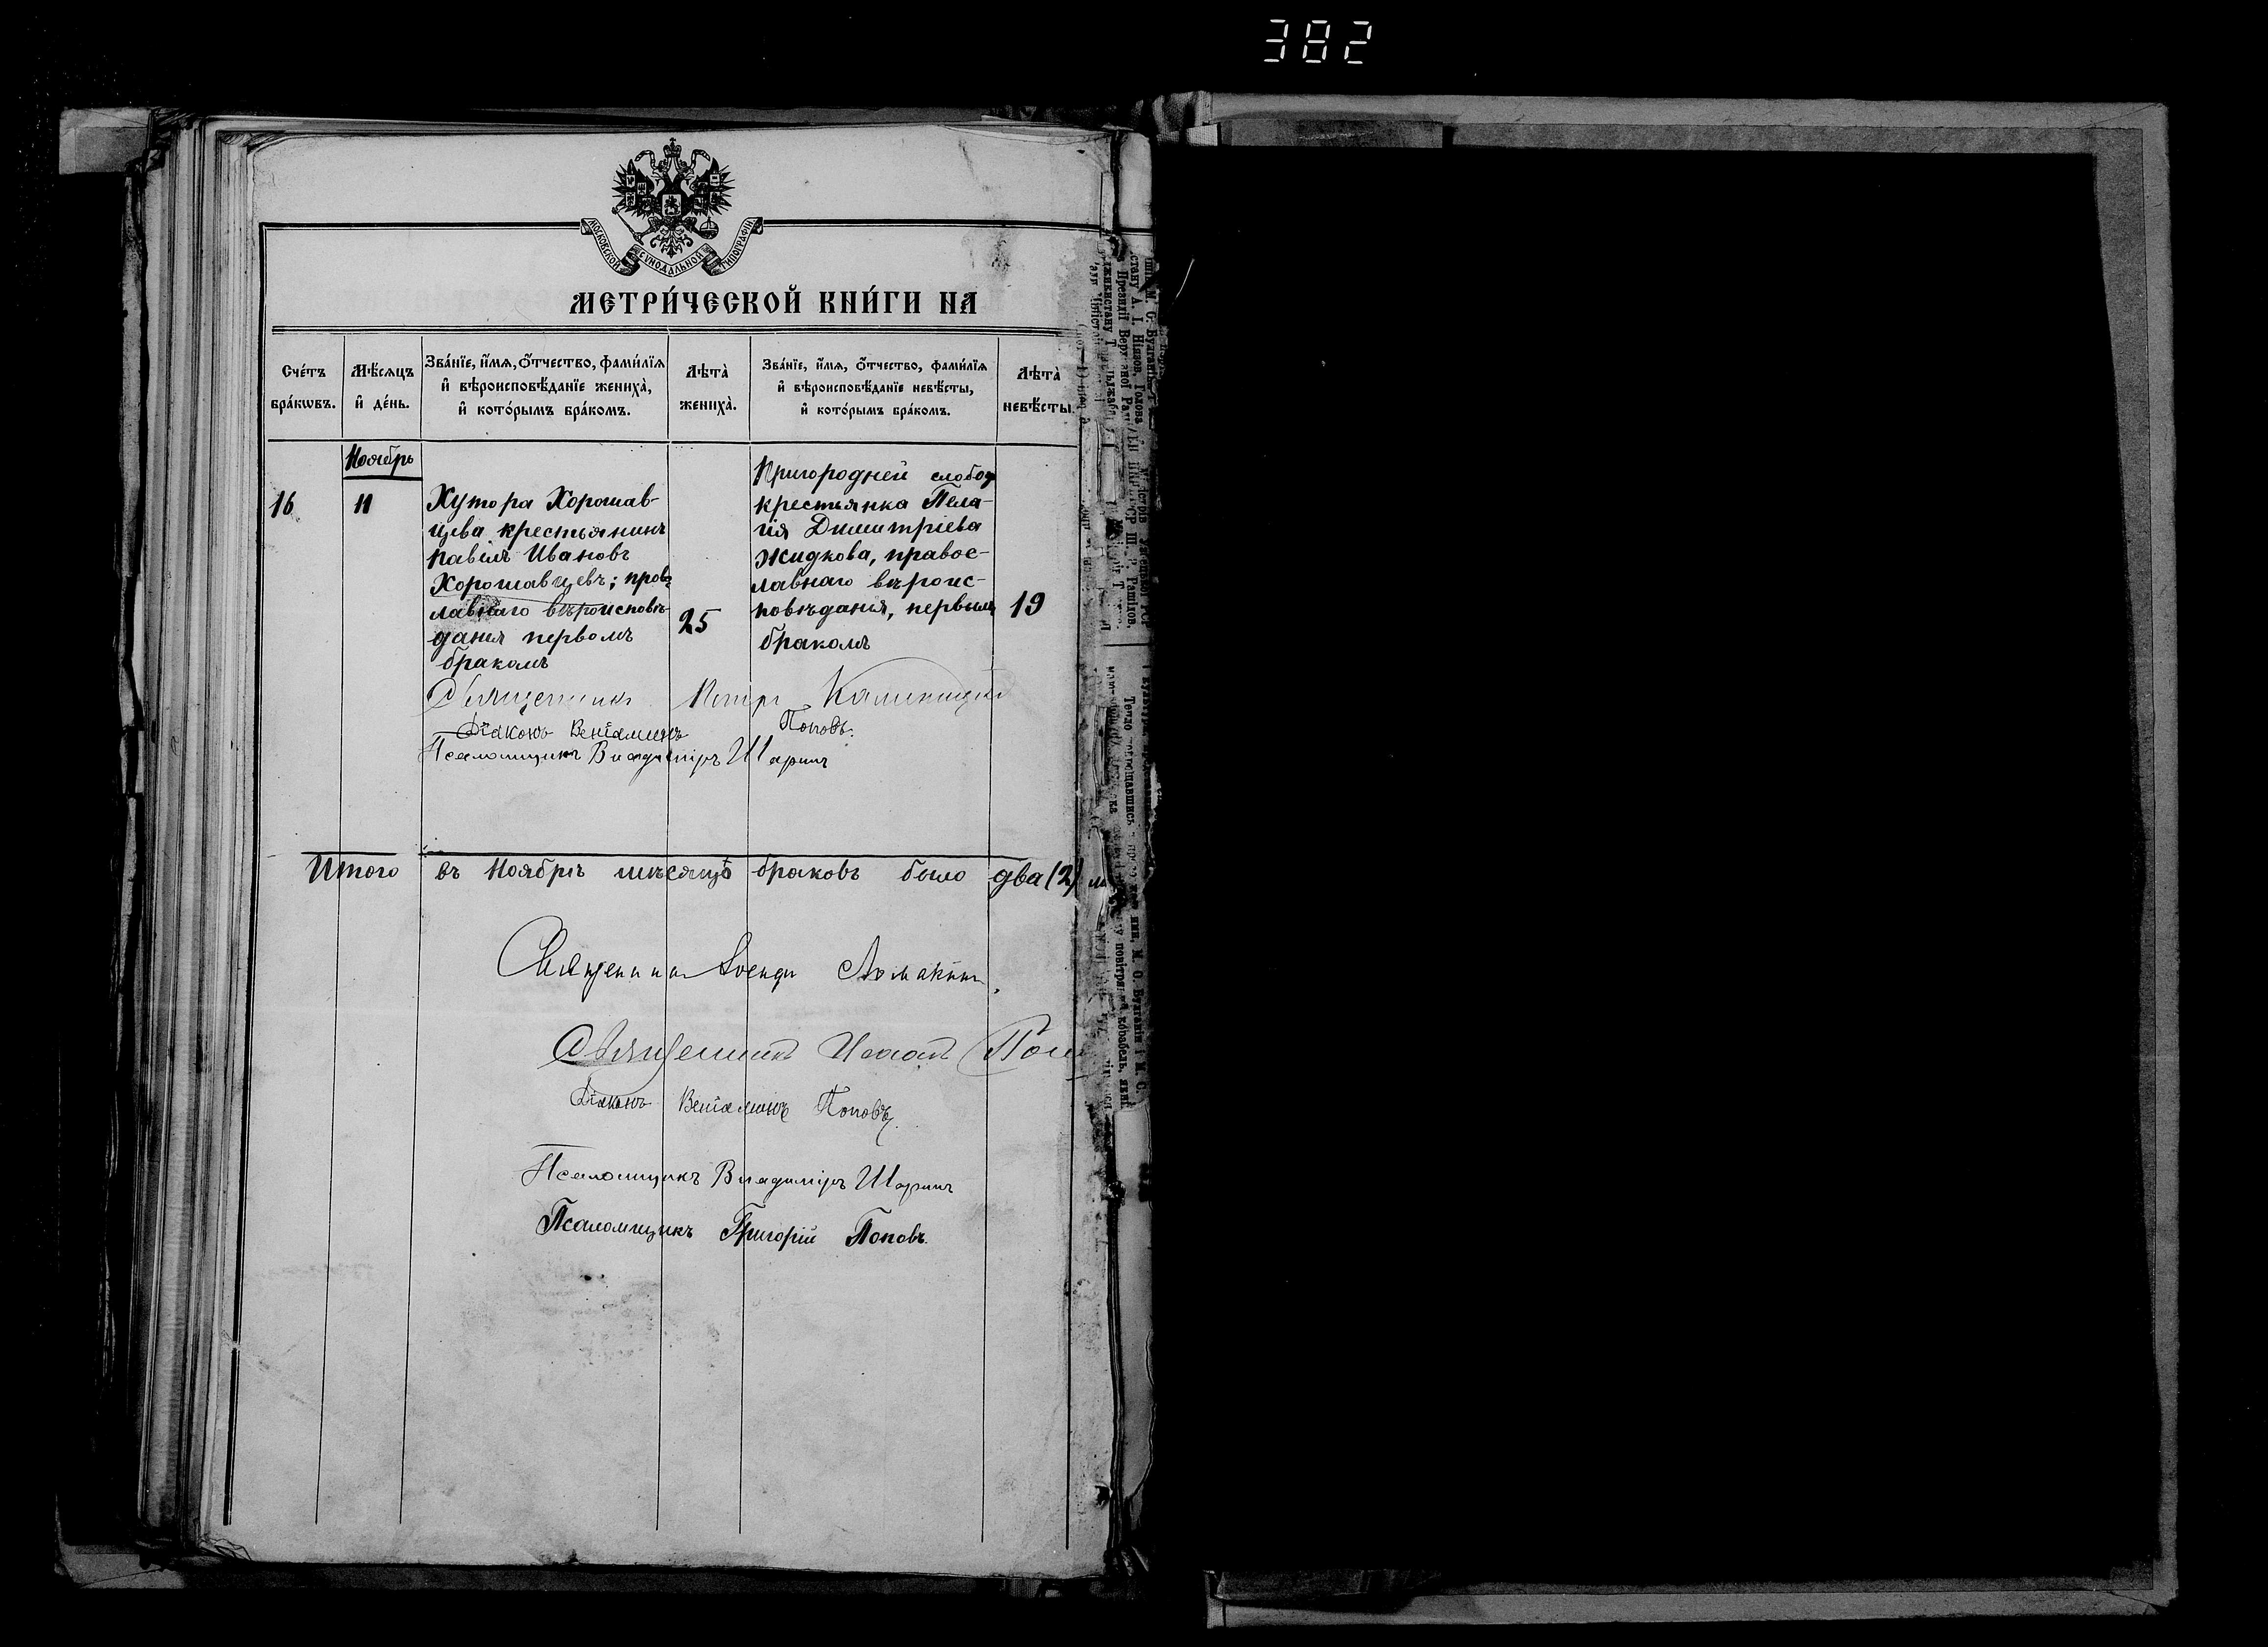 382
МОСКОВСКОЙ СУНОДАЛЬНОЙ ТИПОГРАФІИ.
МЕТРИ́ЧЕСКОЙ КНИ́ГИ НА
Сче́тъ бра́кωвъ.
Мѣ́сяцъ и҆ де́нь.
Зва́нїе, и҆́мѧ, ѻ҆́тчество, фами́лїѧ
и҆ вѣроисповѣ́данїе жениха̀,
и҆ кото́рымъ бра́комъ.
Лѣта̀ жениха̀.
Зва́нїе, и҆́мѧ, ѻ҆́тчество, фами́лїѧ
и҆ вѣроисповѣ́данїе невѣ́сты,
и҆ кото́рымъ бра́комъ.
Лѣта̀ невѣ́сты.
Ноябрь
16
11
Хутора Хорошав-
цева крестьянинъ
Павелъ Ивановъ
Хорошавцевъ; право-
лавнаго вѣроисповѣ-
данія первомъ
бракомъ
25
Пригородней слобод
крестьянка Пела-
гія Димитріева
Жидкова, правос-
лавнаго вѣроис-
повѣданія, первымъ
бракомъ
19
Священникъ Петръ
Діаконъ Веніаминъ Поповъ.
Псаломщикъ Владиміръ Шаринъ
Итого въ Ноябрѣ мѣсяцѣ браковъ было два (2)
Священникъ
Священникъ Исаакъ
Діаконъ Веніаминъ Поповъ.
Псаломщикъ Владиміръ Шаринъ
Псаломщикъ Григорій Поповъ.